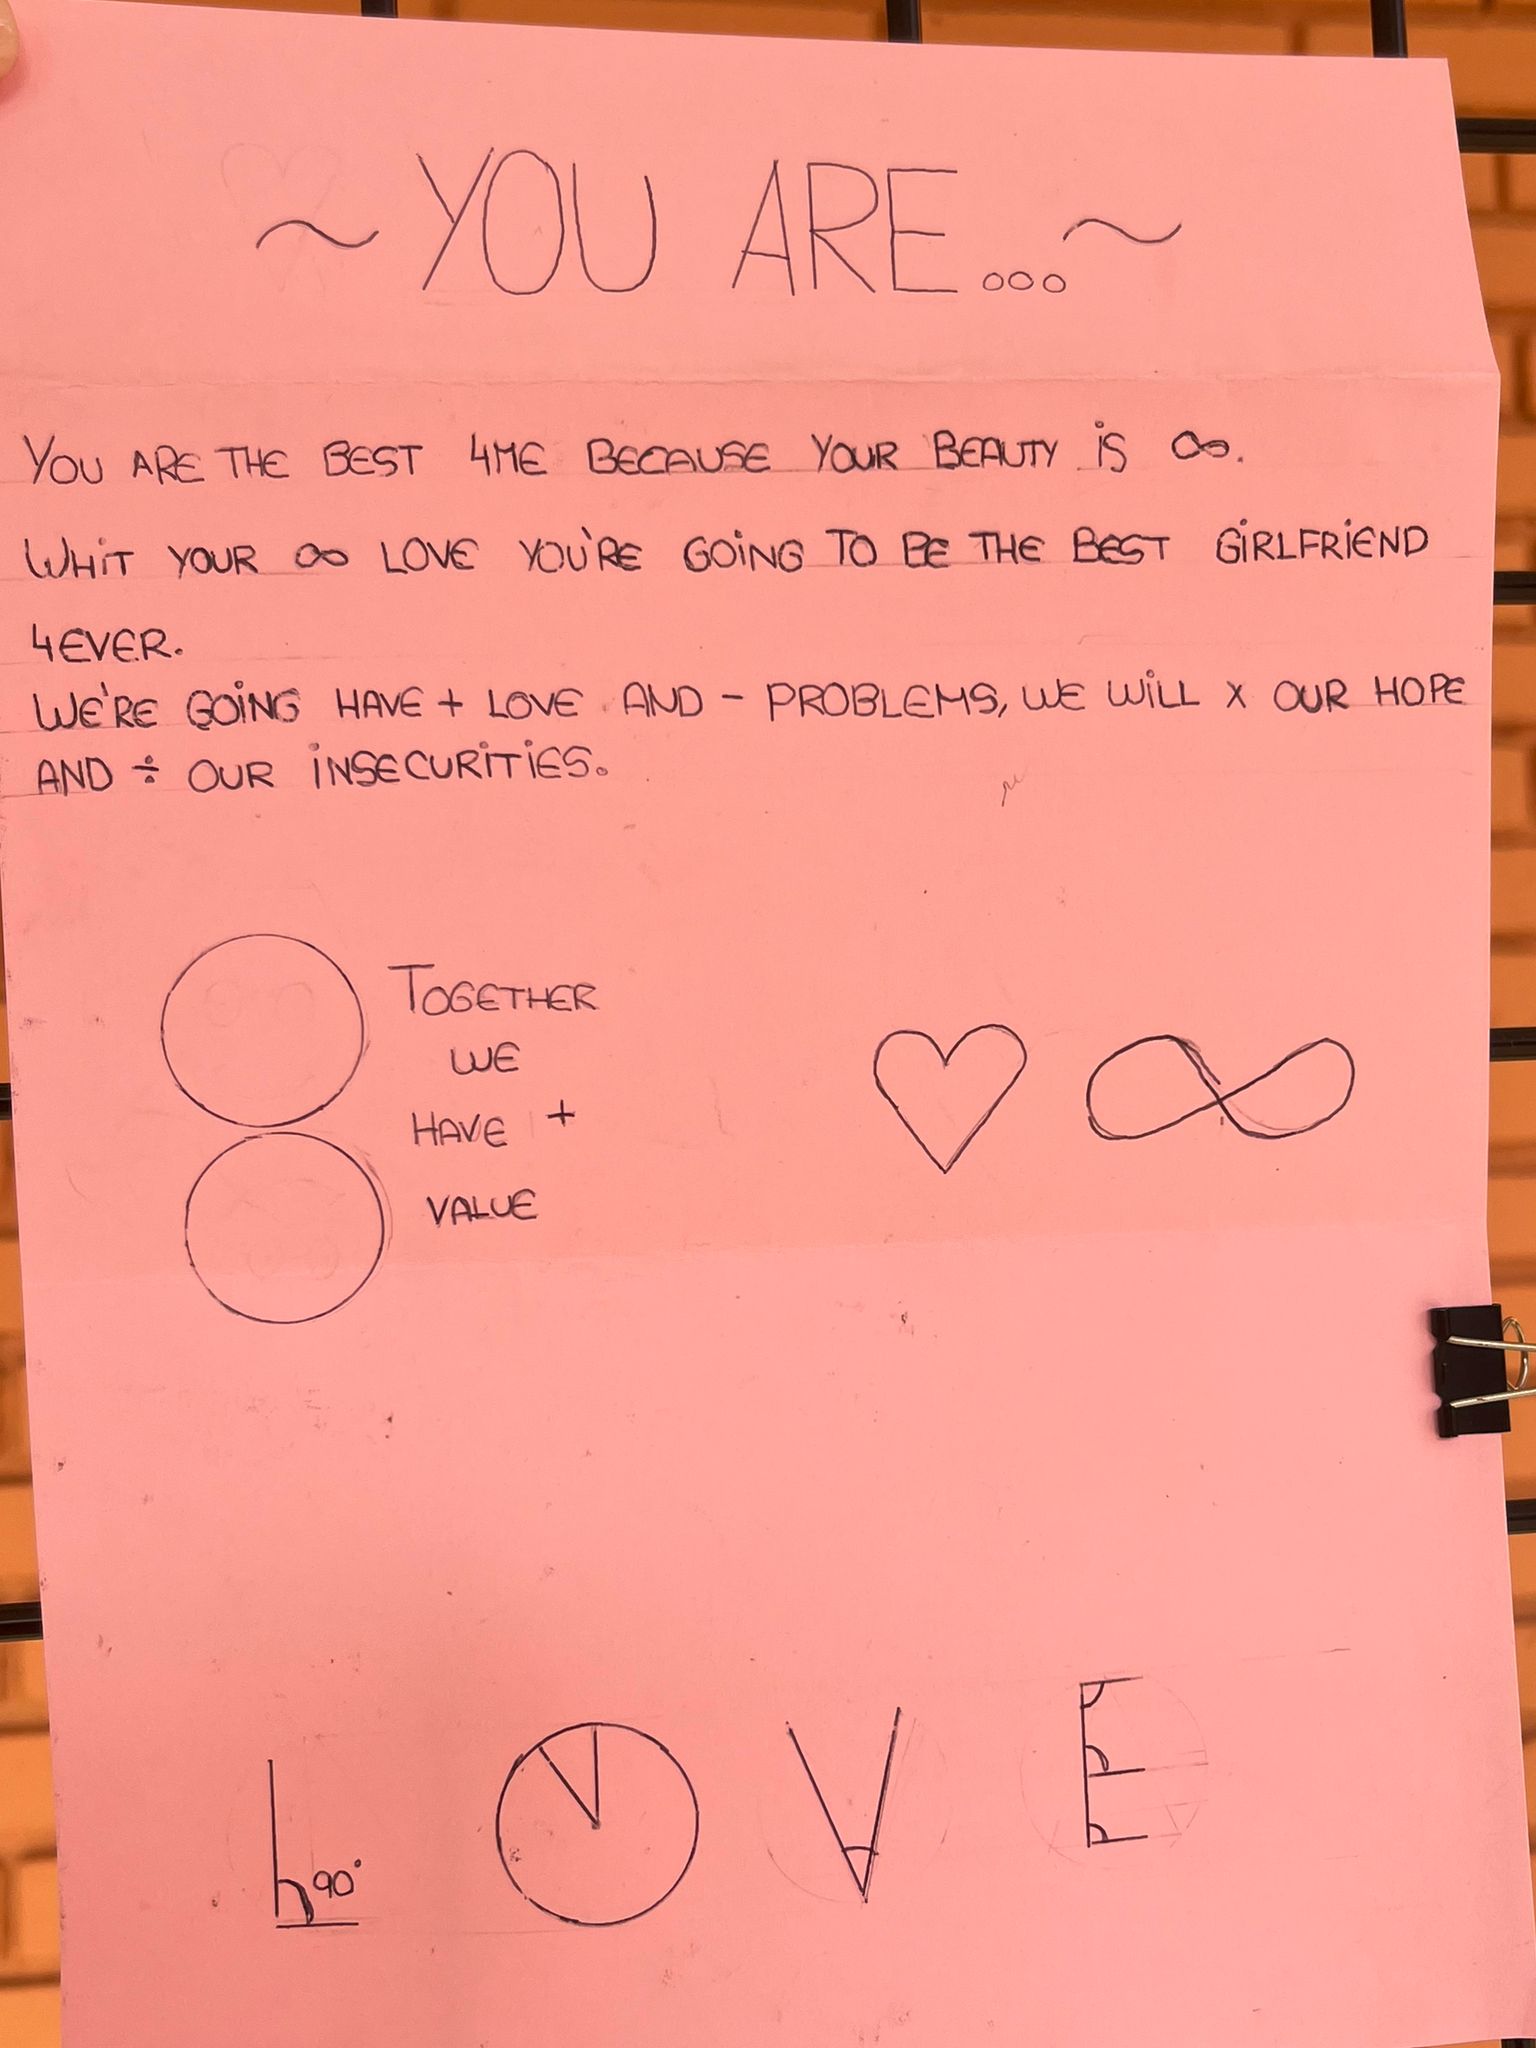 ~ YOU ARE... ~
YOU ARE THE BEST 4ME BECAUSE YOUR BEAUTY IS ∞.
WHIT YOUR ∞ LOVE YOU'RE GOING TO BE THE BEST GIRLFRIEND
4EVER.
WE'RE GOING HAVE + LOVE AND - PROBLEMS, WE WILL x OUR HOPE
AND ÷ OUR INSECURITIES.
TOGETHER
WE
HAVE +
VALUE
L O V E
90°